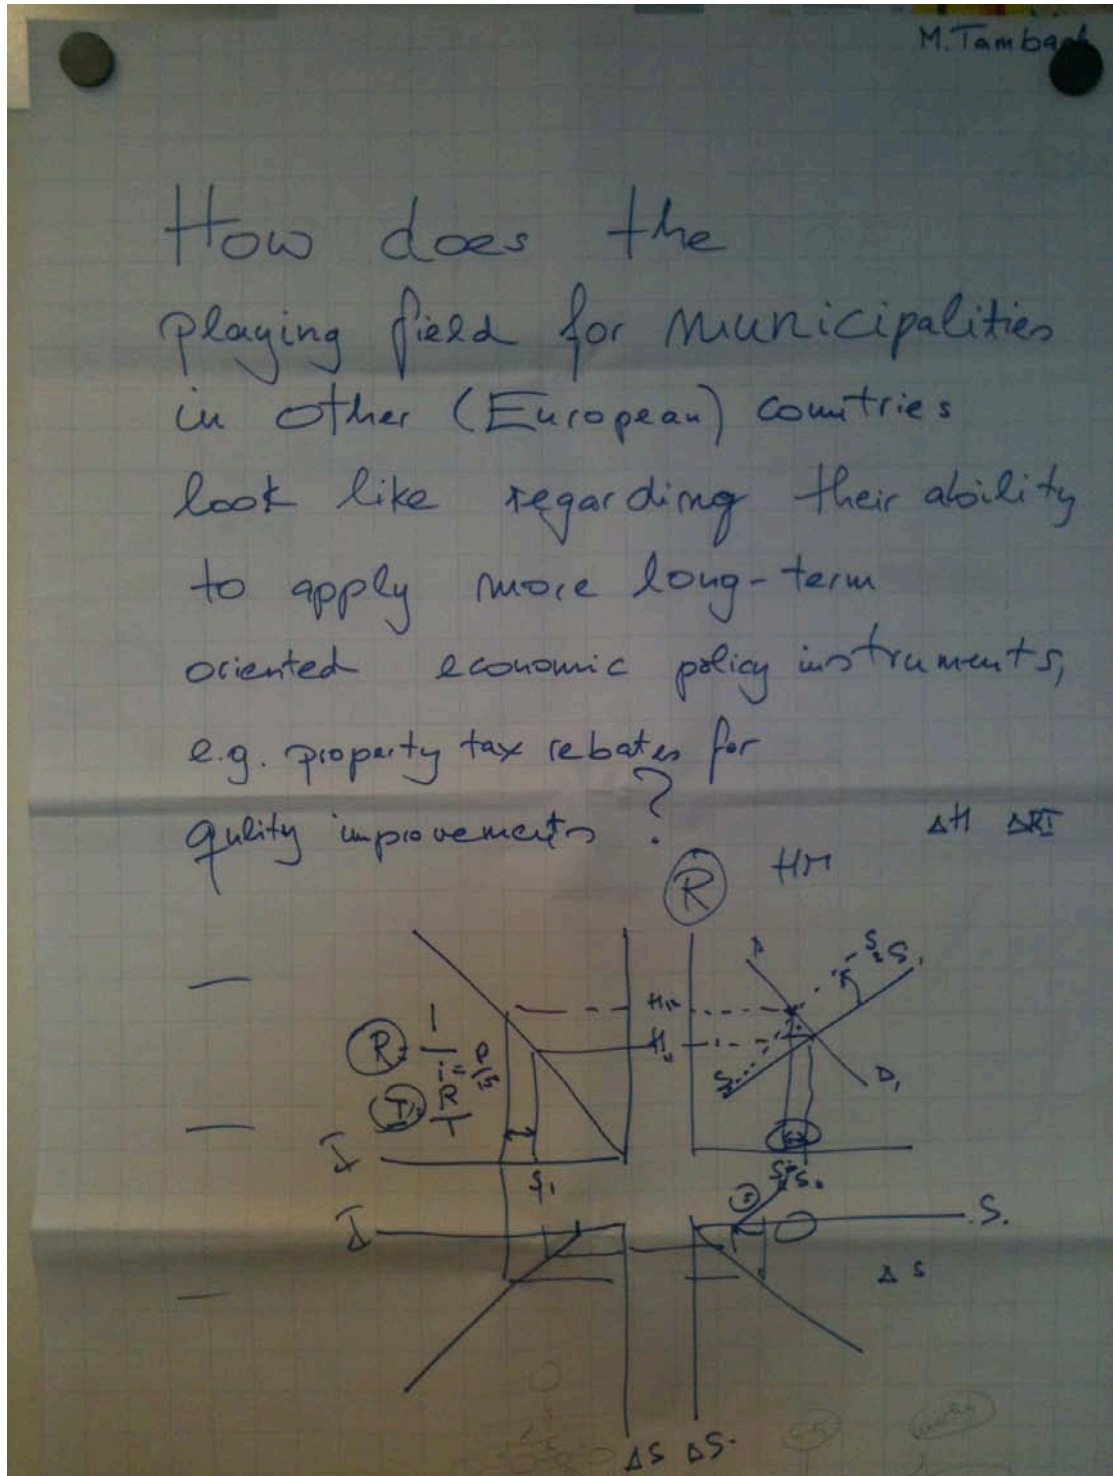 How does the
playing field for municipalities
in other (European) countries
look like regarding their ability
to apply more long-term
oriented economic policy instruments,
e.g. property tax rebates for
qulity improvements ?
ΔH
R HM
S S₁
D₁
R
R
T
I
S₁
I
S.
Δ S
ΔS ΔS